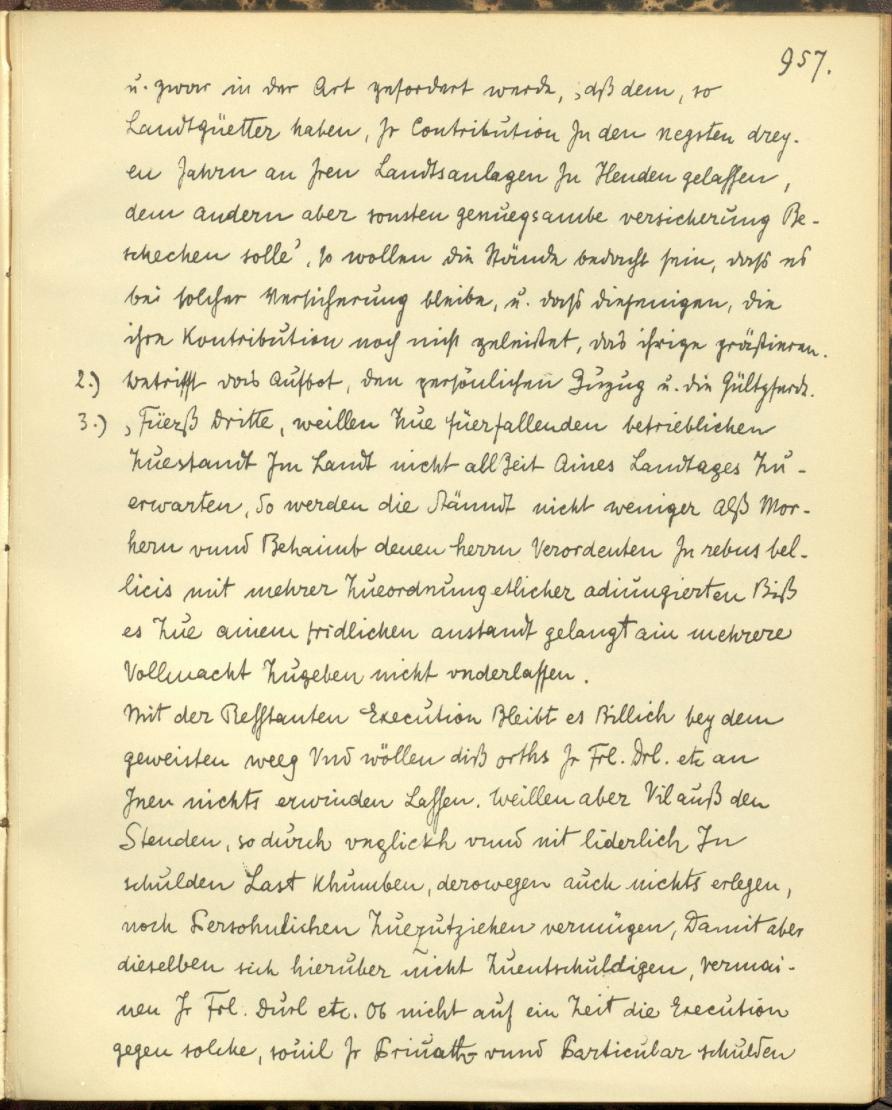 957.
u. zwar in der Art gefordert werde, ‚dß dem, so
Landtgüetter haben, Jr Contribution Jn den negsten drey-
en Jahrn an Jren Landtsanlagen Jn Henden gelassen,
dem andern aber sonsten genuegsambe versicherung Be-
schechen solle', so wollen die Stände bedacht sein, dass es
bei solcher Versicherung bleibe, u. dass diejenigen, die
ihre Kontribution noch nicht geleistet, das ihrige prästieren.
2.) betrifft das Aufbot, den persönlichen Zuzug u. die Gültpferde.
3.) ‚Füerß Dritte, weillen Zue füerfallenden betrieblichen
Zuestandt Jm Landt nicht allZeit Aines Landtages Zu-
erwarten, So werden die Stänndt nicht weniger Alß Mor-
hern vnnd Behaimb denen herrn Verordenten Jn rebus bel-
licis mit mehrer Zueordnung etlicher adiungierten Biß
es Zue ainem fridlichen anstandt gelangt ain mehrere
Vollmacht Zugeben nicht vnderlassen.
Mit der Resstanten Execution Bleibt es Billich bey dem
geweisten weeg Vnd wöllen diß orths Jr Frl. Drl. etc an
Jnen nichts erwinden Lassen. Weillen aber Vil auß den
Stenden, so durch vnglickh vnnd nit liderlich Jn
schulden Last Khumben, derowegen auch nichts erlegen,
noch Persohnlichen Zuezutziehen vermügen, Damit aber
dieselben sich hierüber nicht Zuentschuldigen, vermai-
nen Jr Frl. Durl etc. Ob nicht auf ein Zeit die Execution
gegen solche, souil Jr Priuath vnnd Particular schulden